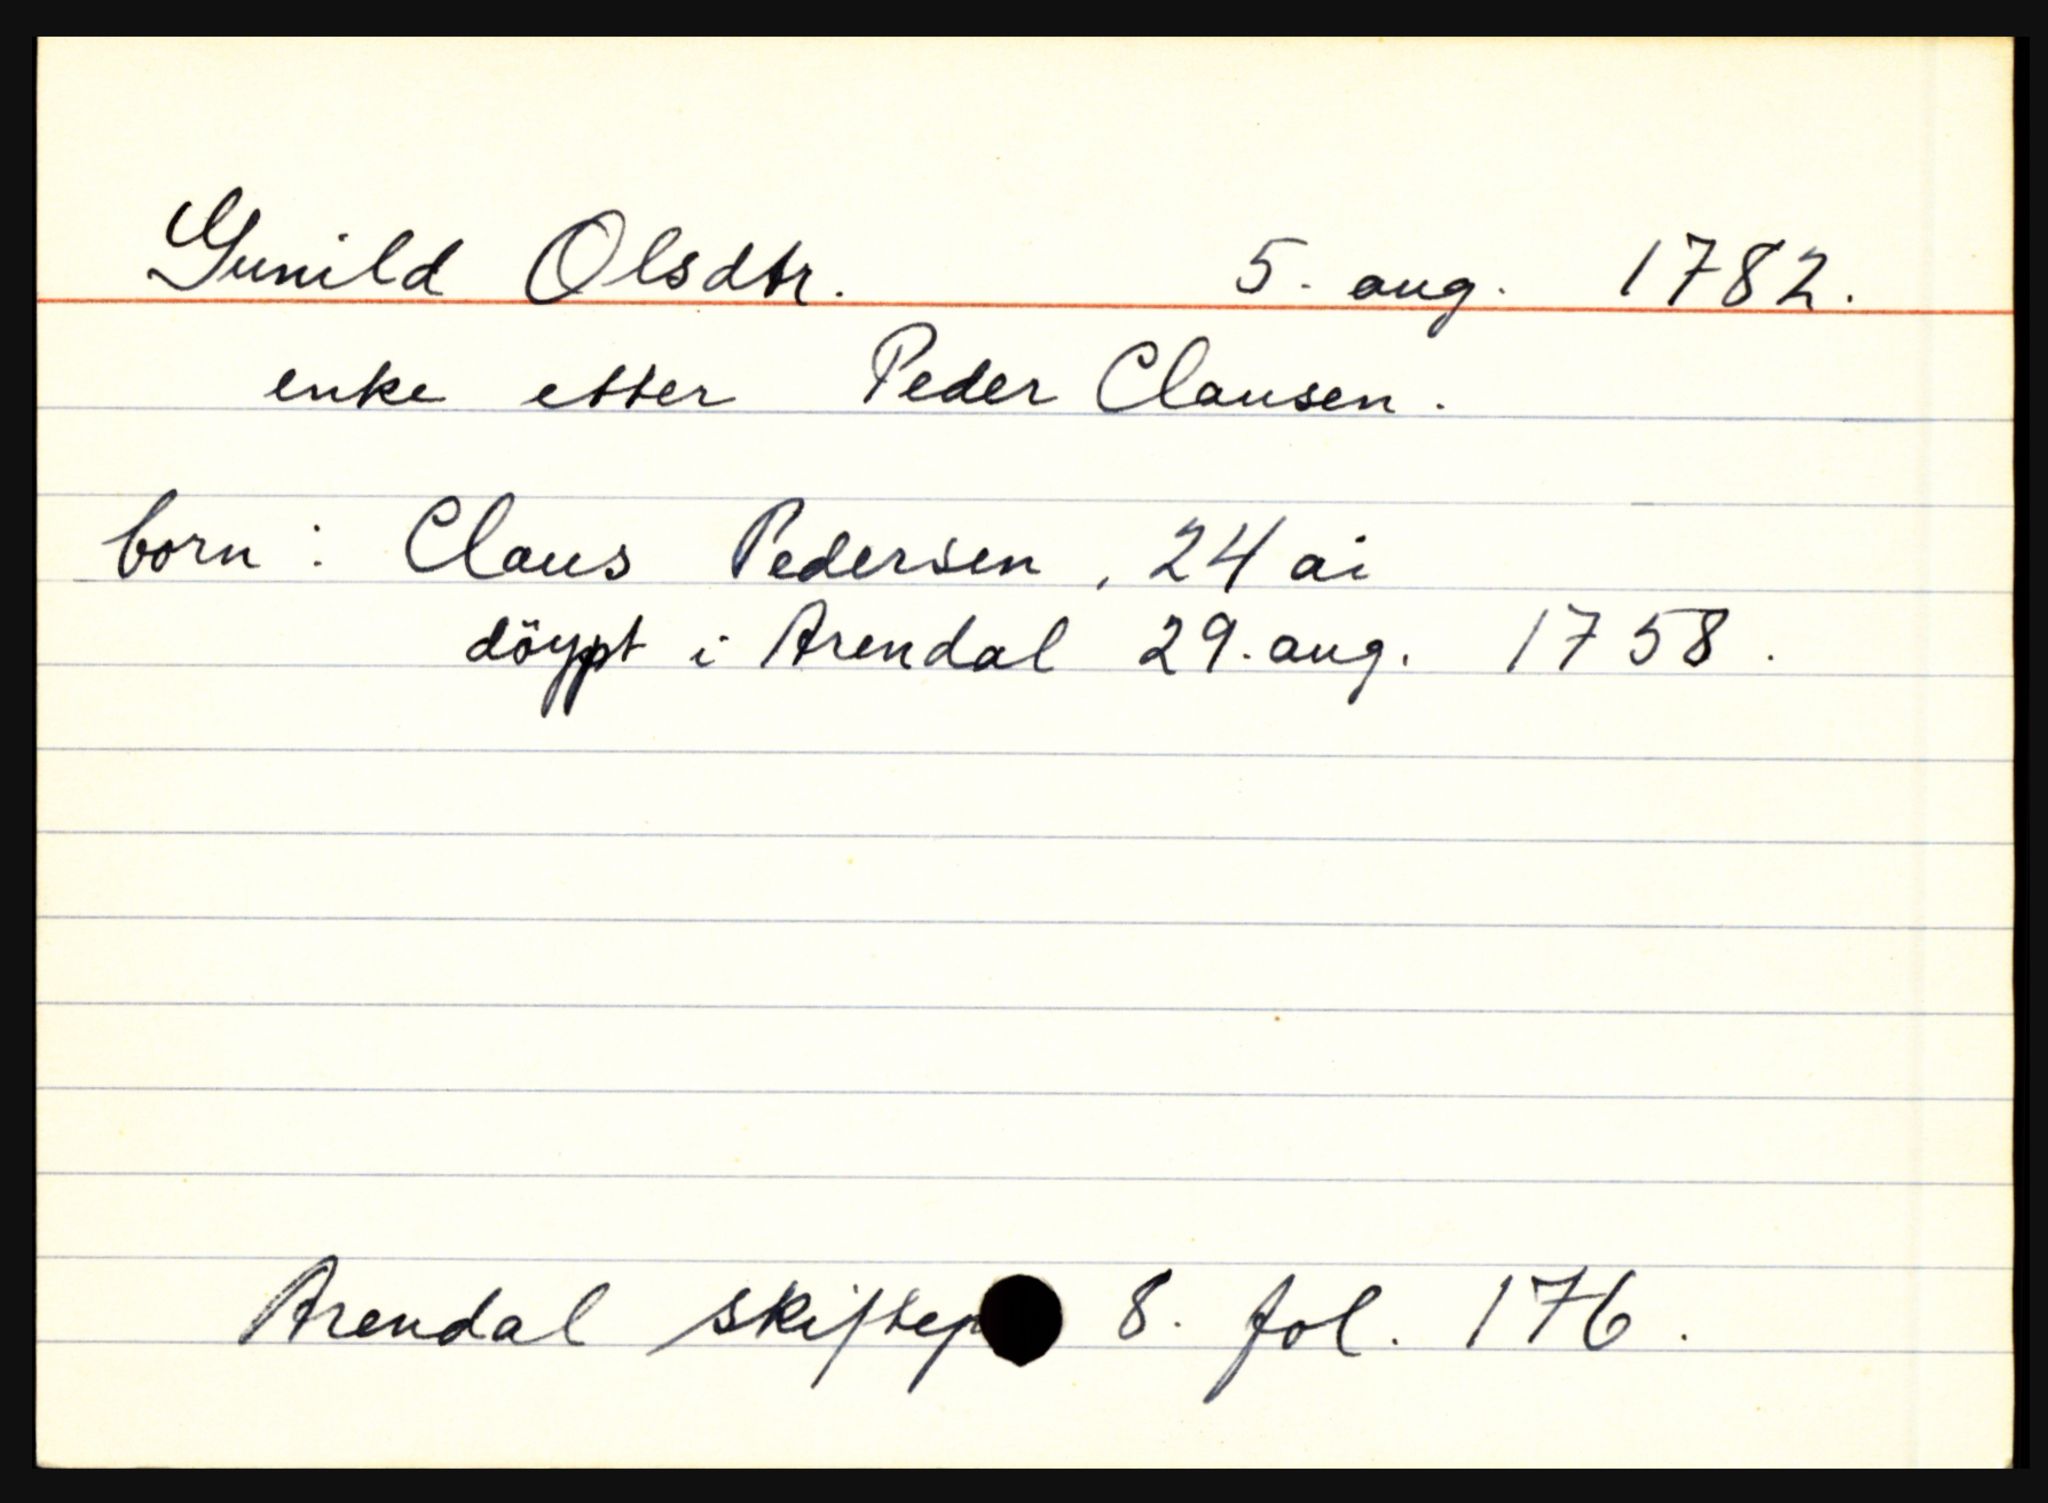 Gunild Olsdtr. 5. aug. 1782.
enke etter Peder Clausen.
born: Claus Pedersen, 24 år
döypt i Arendal 29. aug. 1758.
Arendal 8. fol. 176.